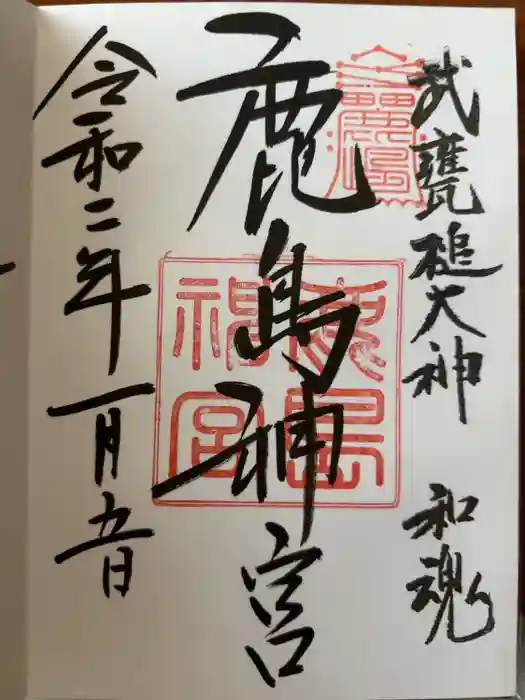 武甕槌大神 和魂
鹿島神宮
鹿島神宮
令和二年一月五日